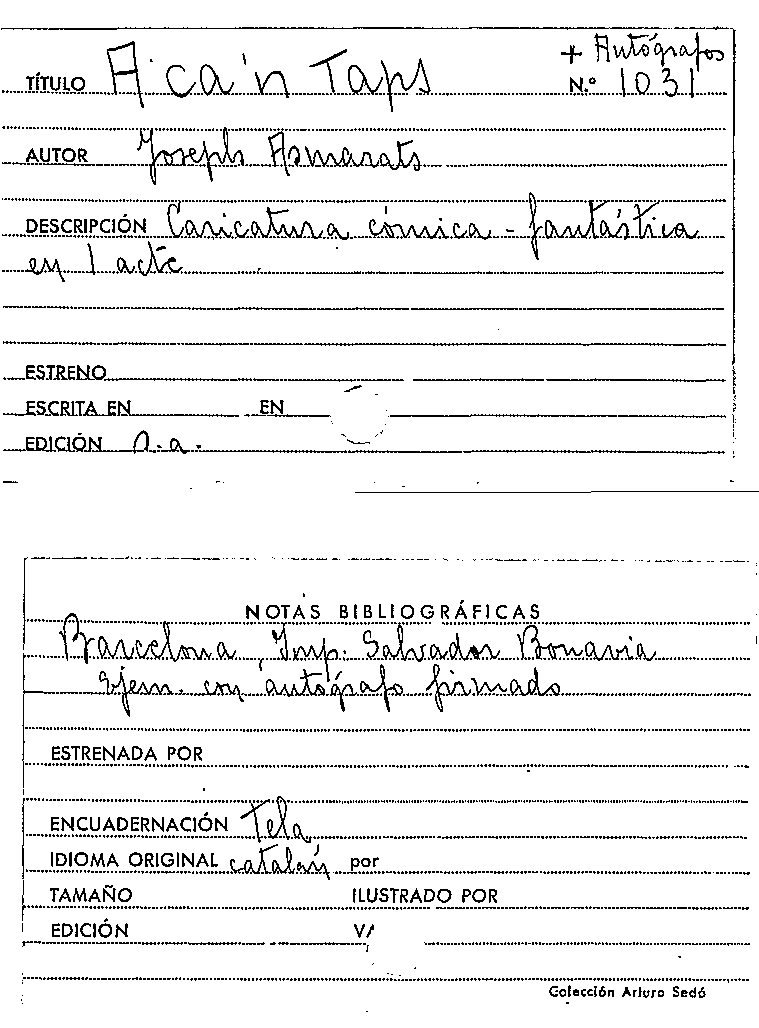 + Autógrafos
TÍTULO A ca'n Taps N.º 1031
AUTOR Joseph Asmarats
DESCRIPCIÓN Caricatura cómica - fantástica
en 1 acte
ESTRENO
ESCRITA EN EN
EDICIÓN s.a.
NOTAS BIBLIOGRÁFICAS
Barcelona, Imp. Salvador Bonavia
Ejem. con autógrafo firmado
ESTRENADA POR
ENCUADERNACIÓN Tela
IDIOMA ORIGINAL catalán por
TAMAÑO ILUSTRADO POR
EDICIÓN
Colección Arturo Sedó